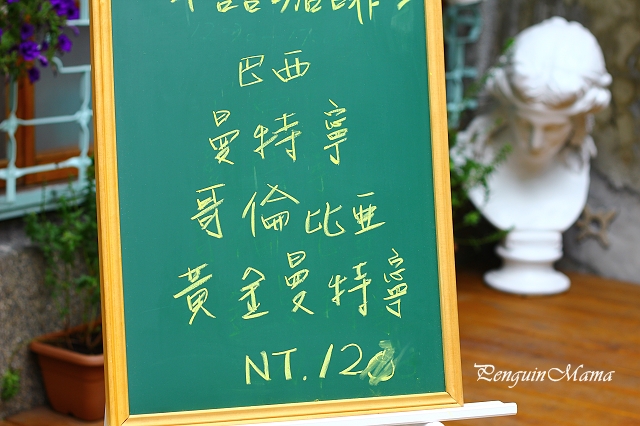 巴西
曼特寧
哥倫比亞
黃金曼特寧
NT.120
PenguinMama
PenguinMama